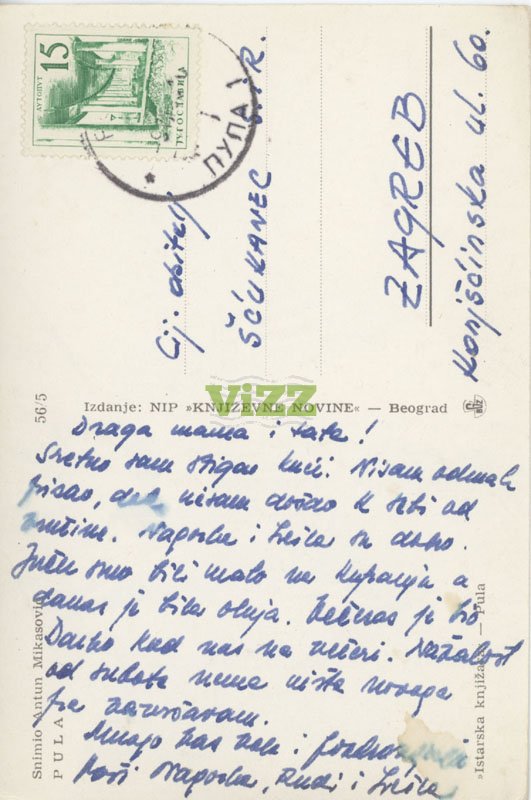 15
АУТОПУТ
ЈУГОСЛАВИЈА
ПУЛА
Cij. obitelj
ŠĆUKANEC R.
ZAGREB
Konjšćinska ul. 60.
56/5
Izdanje: NIP »KNJIŽEVNE NOVINE« — Beograd
ViZZ
Draga mama i tata!
Sretno sam stigao kući. Nisam odmah
pisao, dok nisam došao k sebi od
vrućine. Nagorka i su dobro.
Jučer smo bili malo na kupanju a
danas je bila oluja. Večeras je bio
Darko kod nas na večeri. Nažalost
od subote nema ništa novoga
pa završavam.
Mnogo Vas vole i pozdravljaju
Vaši Nagorka, Rudi i
Snimio Antun Mikasović
PULA
»Istarska knjižara« — Pula